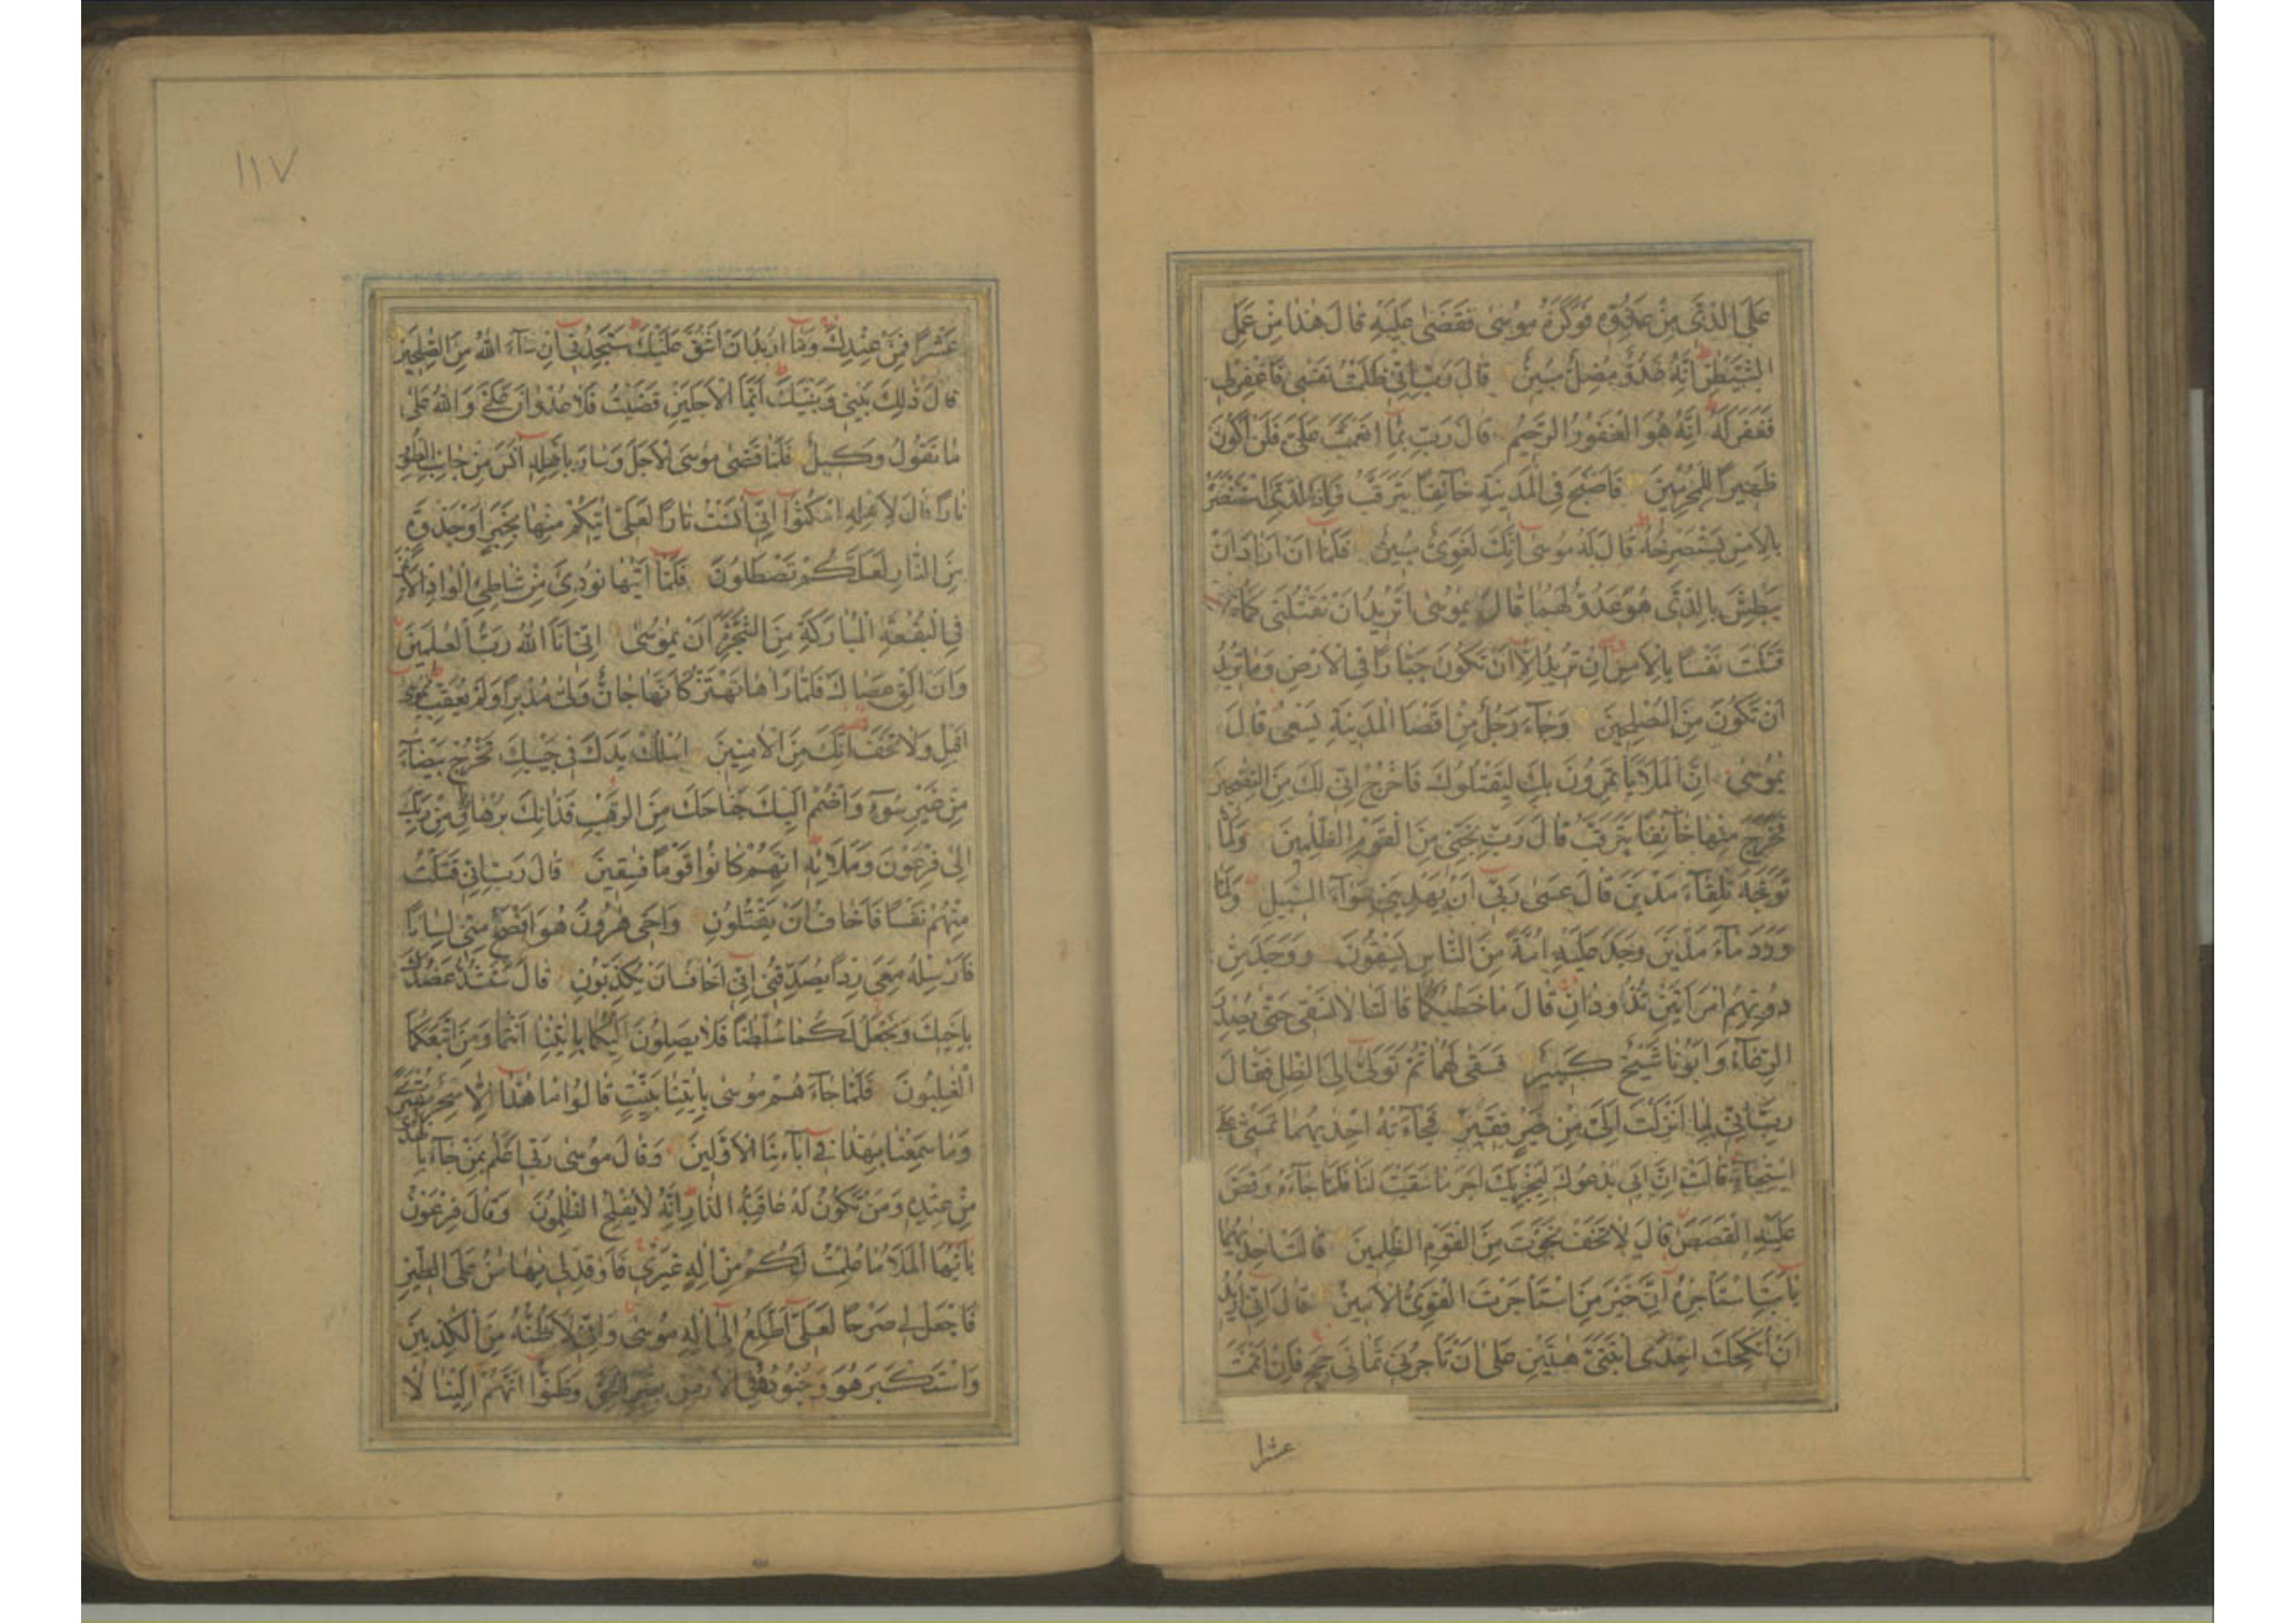 عَلَى الَّذِي مِنْ عَدُوِّهِ فَوَكَزَهُ مُوسٰى فَقَضٰى عَلَيْهِ قَالَ هٰذَا مِنْ عَمَلِ
الشَّيْطٰنِ اِنَّهُ عَدُوٌّ مُضِلٌّ مُبِينٌ قَالَ رَبِّ اِنِّي ظَلَمْتُ نَفْسِي فَاغْفِرْلِي
فَغَفَرَ لَهُ اِنَّهُ هُوَ الْغَفُورُ الرَّحِيمُ قَالَ رَبِّ بِمَا اَنْعَمْتَ عَلَيَّ فَلَنْ اَكُونَ
ظَهِيرًا لِلْمُجْرِمِينَ فَاَصْبَحَ فِي الْمَدِينَةِ خَآئِفًا يَتَرَقَّبُ فَاِذَا الَّذِي اسْتَنْصَرَهُ
بِالْاَمْسِ يَسْتَصْرِخُهُ قَالَ لَهُ مُوسٰى اِنَّكَ لَغَوِيٌّ مُبِينٌ فَلَمَّا اَنْ اَرَادَ اَنْ
يَبْطِشَ بِالَّذِي هُوَ عَدُوٌّ لَهُمَا قَالَ يٰمُوسٰى اَتُرِيدُ اَنْ تَقْتُلَنِي كَمَا
قَتَلْتَ نَفْسًا بِالْاَمْسِ اِنْ تُرِيدُ اِلَّا اَنْ تَكُونَ جَبَّارًا فِي الْاَرْضِ وَمَا تُرِيدُ
اَنْ تَكُونَ مِنَ الْمُصْلِحِينَ وَجَآءَ رَجُلٌ مِنْ اَقْصَا الْمَدِينَةِ يَسْعٰى قَالَ
يٰمُوسٰى اِنَّ الْمَلَاَ يَأْتَمِرُونَ بِكَ لِيَقْتُلُوكَ فَاخْرُجْ اِنِّي لَكَ مِنَ النّٰصِحِينَ
فَخَرَجَ مِنْهَا خَآئِفًا يَتَرَقَّبُ قَالَ رَبِّ نَجِّنِي مِنَ الْقَوْمِ الظّٰلِمِينَ وَلَمَّا
تَوَجَّهَ تِلْقَآءَ مَدْيَنَ قَالَ عَسٰى رَبِّي اَنْ يَهْدِيَنِي سَوَآءَ السَّبِيلِ وَلَمَّا
وَرَدَ مَآءَ مَدْيَنَ وَجَدَ عَلَيْهِ اُمَّةً مِنَ النَّاسِ يَسْقُونَ وَوَجَدَ مِنْ
دُونِهِمُ امْرَاَتَيْنِ تَذُودَانِ قَالَ مَا خَطْبُكُمَا قَالَتَا لَا نَسْقِي حَتّٰى يُصْدِرَ
الرِّعَآءُ وَاَبُونَا شَيْخٌ كَبِيرٌ فَسَقٰى لَهُمَا ثُمَّ تَوَلّٰى اِلَى الظِّلِّ فَقَالَ
رَبِّ اِنِّي لِمَا اَنْزَلْتَ اِلَيَّ مِنْ خَيْرٍ فَقِيرٌ فَجَآءَتْهُ اِحْدٰيهُمَا تَمْشِي عَلَى
اسْتِحْيَآءٍ قَالَتْ اِنَّ اَبِي يَدْعُوكَ لِيَجْزِيَكَ اَجْرَ مَا سَقَيْتَ لَنَا فَلَمَّا جَآءَهُ وَقَصَّ
عَلَيْهِ الْقَصَصَ قَالَ لَا تَخَفْ نَجَوْتَ مِنَ الْقَوْمِ الظّٰلِمِينَ قَالَتْ اِحْدٰيهُمَا
يَا اَبَتِ اسْتَأْجِرْهُ اِنَّ خَيْرَ مَنِ اسْتَأْجَرْتَ الْقَوِيُّ الْاَمِينُ قَالَ اِنِّي اُرِيدُ
اَنْ اُنْكِحَكَ اِحْدَى ابْنَتَيَّ هٰتَيْنِ عَلٰى اَنْ تَأْجُرَنِي ثَمَانِيَ حِجَجٍ فَاِنْ اَتْمَمْتَ
عشرا
١١٧
عَشْرًا فَمِنْ عِنْدِكَ وَمَا اُرِيدُ اَنْ اَشُقَّ عَلَيْكَ سَتَجِدُنِي اِنْ شَآءَ اللّٰهُ مِنَ الصّٰلِحِينَ
قَالَ ذٰلِكَ بَيْنِي وَبَيْنَكَ اَيَّمَا الْاَجَلَيْنِ قَضَيْتُ فَلَا عُدْوَانَ عَلَيَّ وَاللّٰهُ عَلٰى
مَا نَقُولُ وَكِيلٌ فَلَمَّا قَضٰى مُوسَى الْاَجَلَ وَسَارَ بِاَهْلِهِ اٰنَسَ مِنْ جَانِبِ الطُّورِ
نَارًا قَالَ لِاَهْلِهِ امْكُثُوا اِنِّي اٰنَسْتُ نَارًا لَعَلِّي اٰتِيكُمْ مِنْهَا بِخَبَرٍ اَوْ جَذْوَةٍ
مِنَ النَّارِ لَعَلَّكُمْ تَصْطَلُونَ فَلَمَّا اَتٰيهَا نُودِيَ مِنْ شَاطِئِ الْوَادِ الْاَيْمَنِ
فِي الْبُقْعَةِ الْمُبَارَكَةِ مِنَ الشَّجَرَةِ اَنْ يٰمُوسٰى اِنِّي اَنَا اللّٰهُ رَبُّ الْعٰلَمِينَ
وَاَنْ اَلْقِ عَصَاكَ فَلَمَّا رَاٰهَا تَهْتَزُّ كَاَنَّهَا جَانٌّ وَلّٰى مُدْبِرًا وَلَمْ يُعَقِّبْ يٰمُوسٰى
اَقْبِلْ وَلَا تَخَفْ اِنَّكَ مِنَ الْاٰمِنِينَ اُسْلُكْ يَدَكَ فِي جَيْبِكَ تَخْرُجْ بَيْضَآءَ
مِنْ غَيْرِ سُوٓءٍ وَاضْمُمْ اِلَيْكَ جَنَاحَكَ مِنَ الرَّهْبِ فَذَانِكَ بُرْهَانَانِ مِنْ رَبِّكَ
اِلٰى فِرْعَوْنَ وَمَلَائِهِ اِنَّهُمْ كَانُوا قَوْمًا فٰسِقِينَ قَالَ رَبِّ اِنِّي قَتَلْتُ
مِنْهُمْ نَفْسًا فَاَخَافُ اَنْ يَقْتُلُونِ وَاَخِي هٰرُونُ هُوَ اَفْصَحُ مِنِّي لِسَانًا
فَاَرْسِلْهُ مَعِيَ رِدْءًا يُصَدِّقُنِي اِنِّي اَخَافُ اَنْ يُكَذِّبُونِ قَالَ سَنَشُدُّ عَضُدَكَ
بِاَخِيكَ وَنَجْعَلُ لَكُمَا سُلْطٰنًا فَلَا يَصِلُونَ اِلَيْكُمَا بِاٰيٰتِنَا اَنْتُمَا وَمَنِ اتَّبَعَكُمَا
الْغٰلِبُونَ فَلَمَّا جَآءَهُمْ مُوسٰى بِاٰيٰتِنَا بَيِّنٰتٍ قَالُوا مَا هٰذَا اِلَّا سِحْرٌ مُفْتَرًى
وَمَا سَمِعْنَا بِهٰذَا فِي اٰبَآئِنَا الْاَوَّلِينَ وَقَالَ مُوسٰى رَبِّي اَعْلَمُ بِمَنْ جَآءَ بِالْهُدٰى
مِنْ عِنْدِهِ وَمَنْ تَكُونُ لَهُ عَاقِبَةُ الدَّارِ اِنَّهُ لَا يُفْلِحُ الظّٰلِمُونَ وَقَالَ فِرْعَوْنُ
يَا اَيُّهَا الْمَلَاُ مَا عَلِمْتُ لَكُمْ مِنْ اِلٰهٍ غَيْرِي فَاَوْقِدْ لِي يٰهَامٰنُ عَلَى الطِّينِ
فَاجْعَلْ لِي صَرْحًا لَعَلِّي اَطَّلِعُ اِلٰى اِلٰهِ مُوسٰى وَاِنِّي لَاَظُنُّهُ مِنَ الْكٰذِبِينَ
وَاسْتَكْبَرَ هُوَ وَجُنُودُهُ فِي الْاَرْضِ بِغَيْرِ الْحَقِّ وَظَنُّوا اَنَّهُمْ اِلَيْنَا لَا